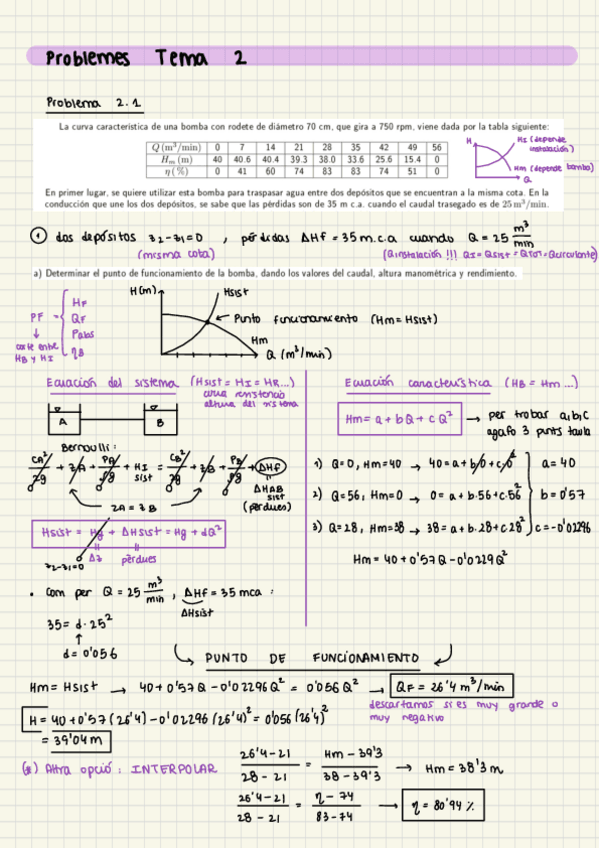 Problemes Tema 2
Problema 2.1
La curva característica de una bomba con rodete de diámetro 70 cm, que gira a 750 rpm, viene dada por la tabla siguiente:
Q (m³/min) 0 7 14 21 28 35 42 49 56
Hm (m) 40 40.6 40.4 39.3 38.0 33.6 25.6 15.4 0
η (%) 0 41 60 74 83 83 74 51 0
H
HI (depende instalación)
Hm (depende bomba)
Q
En primer lugar, se quiere utilizar esta bomba para traspasar agua entre dos depósitos que se encuentran a la misma cota. En la
conducción que une los dos depósitos, se sabe que las pérdidas son de 35 m c.a. cuando el caudal trasegado es de 25 m³/min.
① dos depósitos z2-z1=0 , pérdidas ΔHf = 35 m.c.a cuando Q = 25 m³/min
(misma cota)
(Qinstalación !!! QI = Qsist = QTOT = Qcirculante)
a) Determinar el punto de funcionamiento de la bomba, dando los valores del caudal, altura manométrica y rendimiento.
PF = HF
QF
Pabs
ηB
↓
corte entre
HB y HI
H(m)
Hsist
← Punto funcionamiento (Hm = Hsist)
Hm
Q (m³/min)
Ecuación del sistema (Hsist = HI = HR...)
curva resistencia
altura del sistema
A
B
Bernoulli:
CA²/2g + zA + PA/ρg + HI sist = CB²/2g + zB + PB/ρg + ΔHf
ΔHAB
sist
(pèrdues)
zA = zB
Hsist = Hg + ΔHsist = Hg + dQ²
Δz
pèrdues
z2-z1=0
• Com per Q = 25 m³/min , ΔHf = 35 mca :
ΔHsist
35 = d · 25²
↑
d = 0'056
Ecuación característica (HB = Hm ...)
Hm = a + bQ + cQ²
→ per trobar a,b,c
agafo 3 punts taula
1) Q=0, Hm=40 → 40 = a + b/0 + c/0² a = 40
2) Q=56, Hm=0 → 0 = a + b·56 + c·56² b = 0'57
3) Q=28, Hm=38 → 38 = a + b·28 + c 28² c = -0'02296
Hm = 40 + 0'57Q - 0'0229Q²
PUNTO DE FUNCIONAMIENTO
Hm = Hsist → 40 + 0'57 Q - 0'02296 Q² = 0'056 Q² → QF = 26'4 m³/min
descartamos si es muy grande o
muy negativo
H = 40 + 0'57 (26'4) - 0'02296 (26'4)² = 0'056 (26'4)²
= 39'04 m
(*) Altra opció : INTERPOLAR
26'4-21/28-21 = Hm-39'3/38-39'3 → Hm = 38'3 m
26'4-21/28-21 = η-74/83-74 → η = 80'94 %